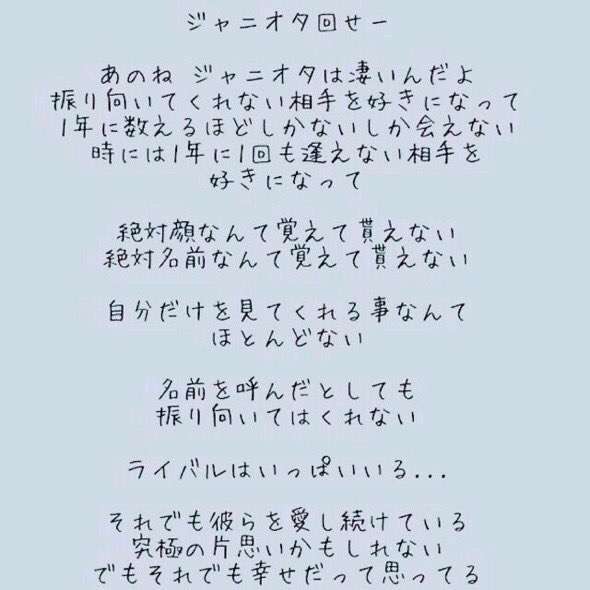 ジャニオタ回せー
あのね ジャニオタは凄いんだよ
振り向いてくれない相手を好きになって
1年に数えるほどしかないしか会えない
時には1年に1回も逢えない相手を
好きになって
絶対顔なんて覚えて貰えない
絶対名前なんて覚えて貰えない
自分だけを見てくれる事なんて
ほとんどない
名前を呼んだとしても
振り向いてはくれない
ライバルはいっぱいいる...
それでも彼らを愛し続けている
究極の片思いかもしれない
でもそれでも幸せだって思ってる